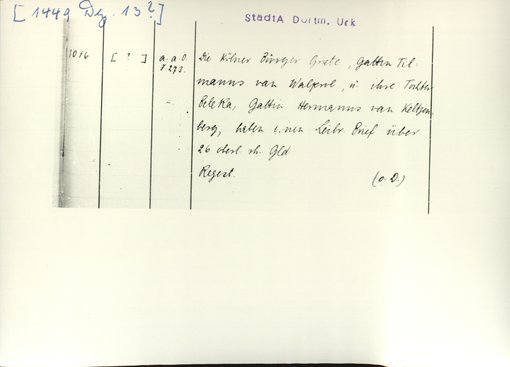 [1449 Dez. 13?]
StadtA Dortm. Urk
1016 [ ? ] a.a.O. Die Kölner Bürger Grete, Gattin Til-
273. manns van Walprol, u ihre Tochter
Beleka, Gattin Hermanns van
berg, haben einen Leibr. Brief über
26 oberl. rh. Gld
Regest. (o. D.)